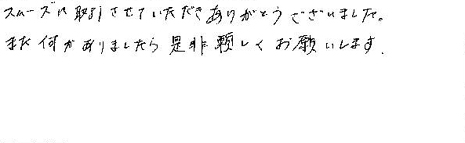 スムーズに取引させていただきありがとうございました。
また何かありましたら是非宜しくお願いします.